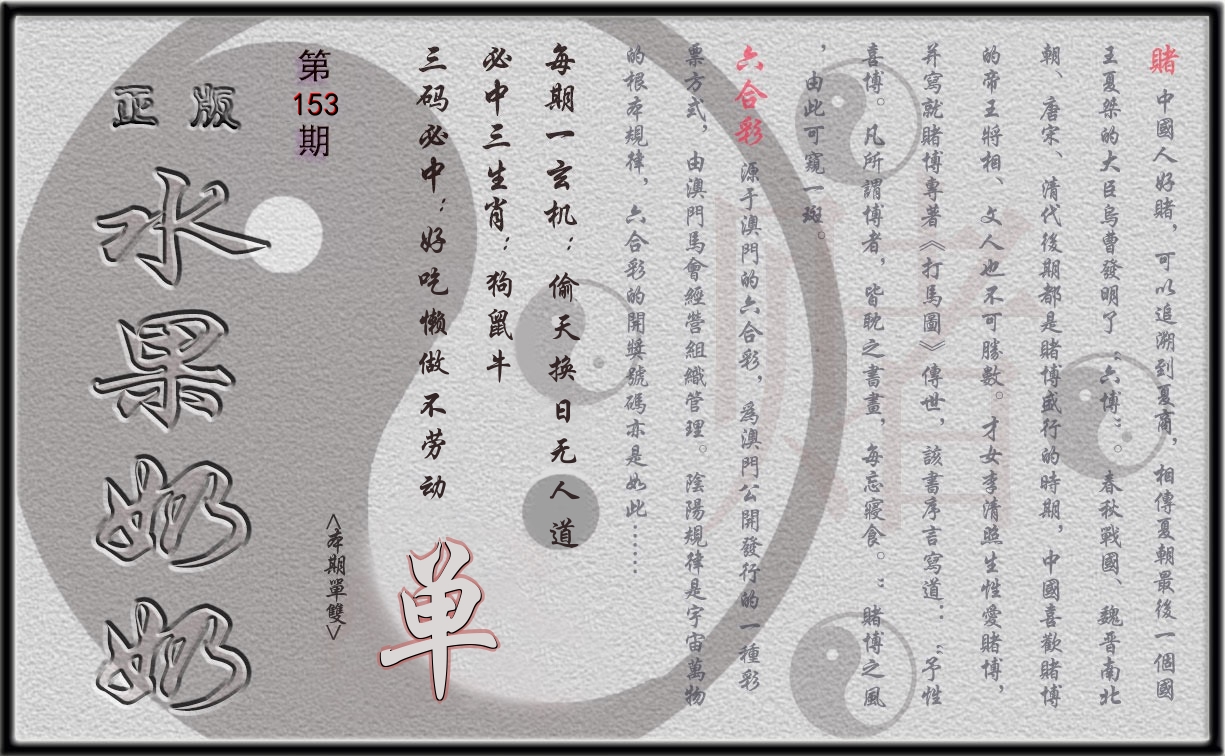 賭 中國人好賭，可以追溯到夏商，相傳夏朝最後一個國
王夏桀的大臣烏曹發明了“六博”。春秋戰國、魏晋南北
朝、唐宋、清代後期都是賭博盛行的時期，中國喜歡賭博
的帝王將相、文人也不可勝數。才女李清照生性愛賭博，
并寫就賭博專著《打馬圖》傳世，該書序言寫道：“予性
喜博。凡所謂博者，皆耽之書畫，每忘寢食。”賭博之風
，由此可窺一斑。
六合彩 源于澳門的六合彩，爲澳門公開發行的一種彩
票方式，由澳門馬會經營組織管理。陰陽規律是宇宙萬物
的根本規律，六合彩的開獎號碼亦是如此……
每期一玄机：偷天换日无人道
必中三生肖：狗鼠牛
三码必中：好吃懒做不劳动
单
<本期單雙>
第
153
期
正版
水果奶奶
赌